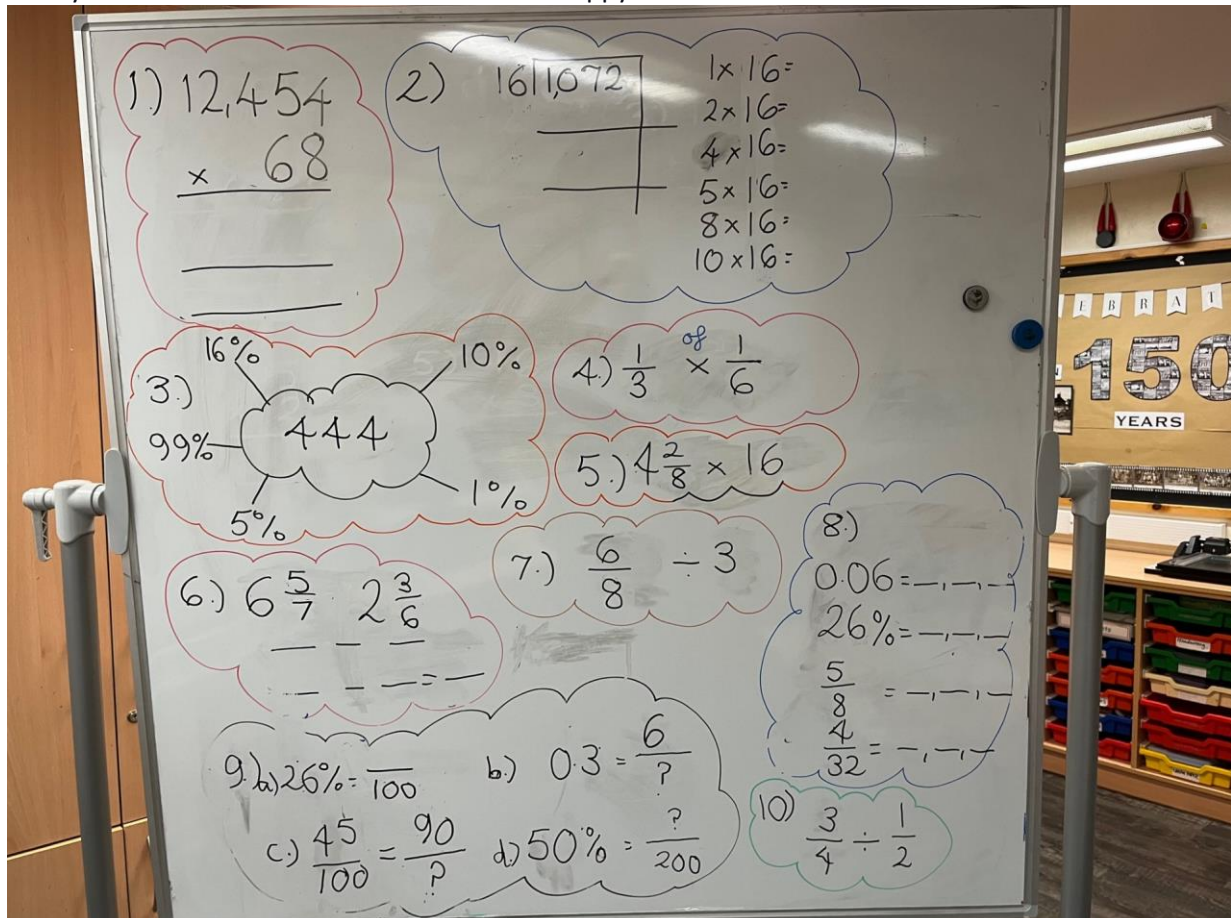 1.) 12,454
× 68
2) 16 1,072
1× 16=
2×16=
4 ×16=
5×16=
8×16=
10×16=
3.) 444
16%
10%
99%
5%
1%
4.) 1/3 × 1/6
of
5.) 4 2/8 × 16
6.) 6 5/7 2 3/6
_ - _
_ - _ = _
7.) 6/8 ÷ 3
8.)
0.06=_,_,_
26%=_,_,_
5/8 =_,_,_
4/32=_,_,_
9.) a) 26%= /100
b.) 0.3 = 6/?
c.) 45/100 = 90/?
d.) 50% = ?/200
10) 3/4 ÷ 1/2
E B R A T
150
YEARS